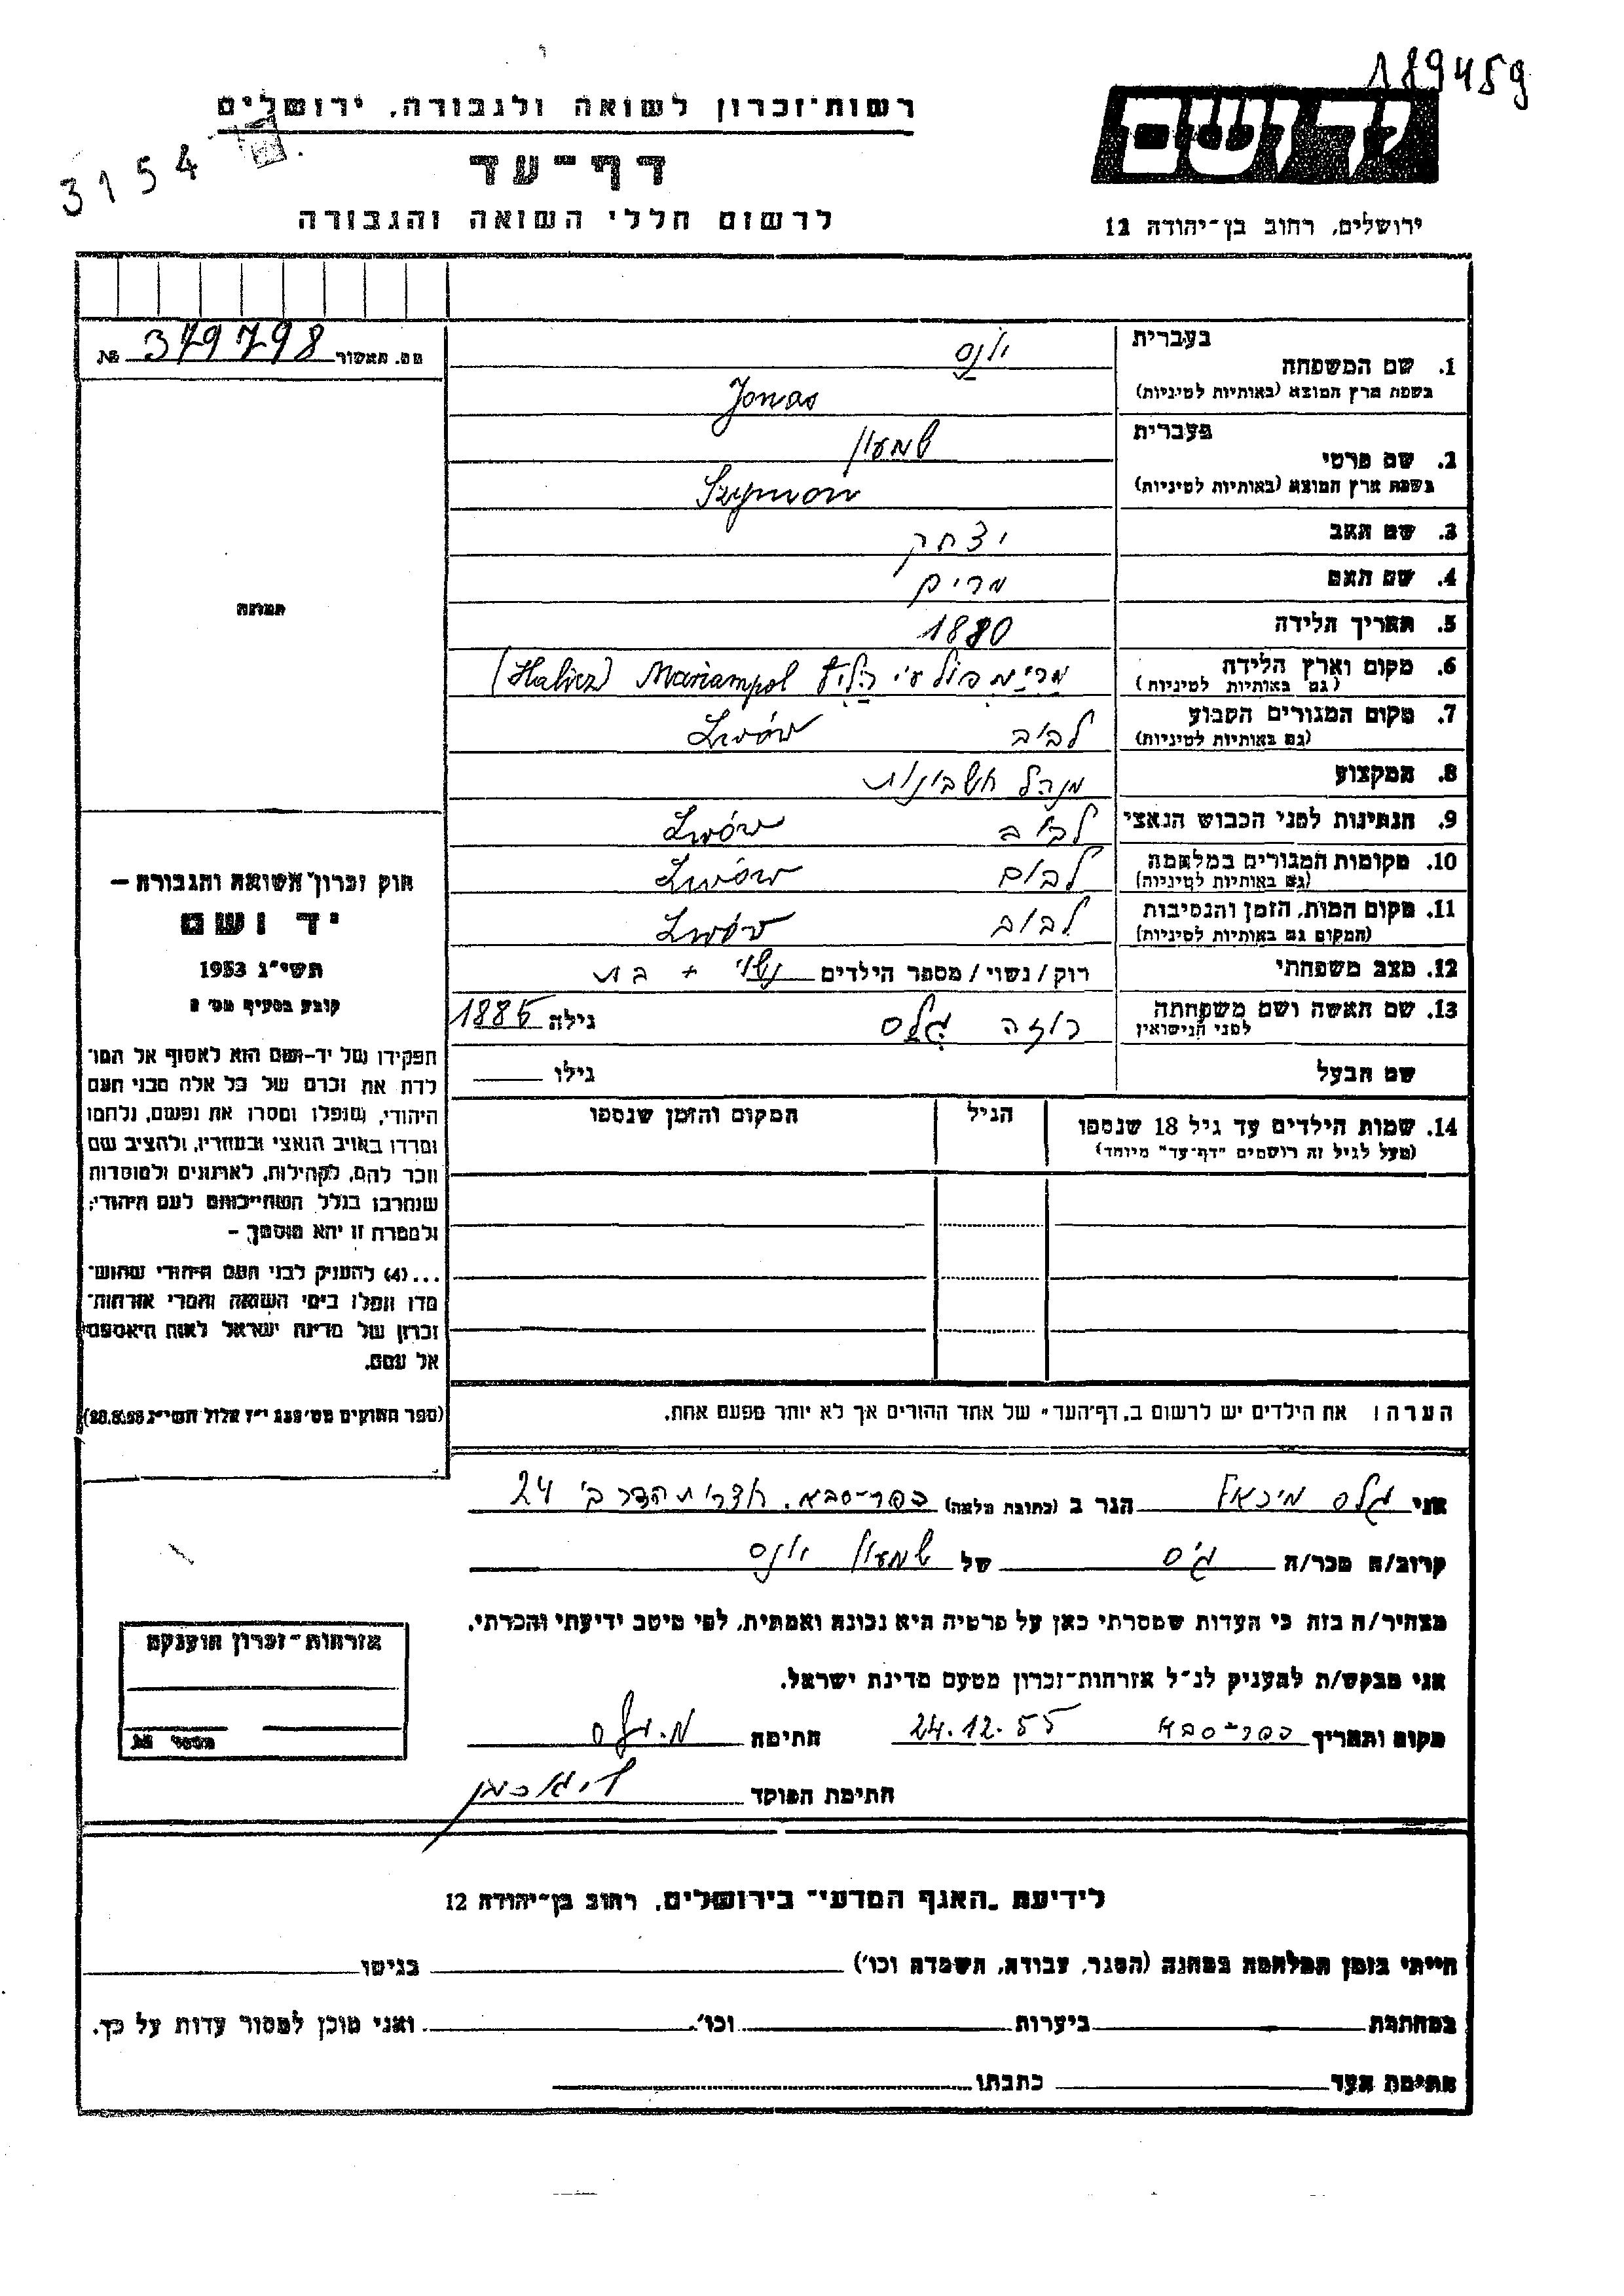 189459
רשות־זכרון לשואה ולגבורה, ירושלים
יד ושם
3154
דף־עד
לרשום חללי השואה והגבורה
ירושלים, רחוב בן־יהודה 12
מס. תאשור 379798 №
1. שם המשפחה
בעברית יונס
בשפת ארץ המוצא (באותיות לטיניות) Jonas
2. שם פרטי
בעברית שמעון
בשפת ארץ המוצא (באותיות לטיניות) Szymon
3. שם האב יצחק
4. שם האם מרים
5. תאריך הלידה 1880
6. מקום וארץ הלידה מרימפול ע״י הליץ Mariampol (Halicz)
(גם באותיות לטיניות)
7. מקום המגורים הקבוע לבוב Lwów
(גם באותיות לטיניות)
8. המקצוע מנהל חשבונות
9. הנתינות לפני הכבוש הנאצי לבוב Lwów
10. מקומות המגורים במלחמה לבוב Lwów
(גם באותיות לטיניות)
11. מקום המות, הזמן והנסיבות לבוב Lwów
(המקום גם באותיות לטיניות)
12. מצב משפחתי רוק/נשוי/מספר הילדים נשוי + בת
13. שם האשה ושם משפחתה רוזה גלס גילה 1885
לפני הנישואין
שם הבעל גילו
14. שמות הילדים עד גיל 18 שנספו הגיל המקום והזמן שנספו
(מעל לגיל זה רושמים "דף־עד" מיוחד)
הערה: את הילדים יש לרשום ב„דף־העד" של אחד ההורים אך לא יותר מפעם אחת.
תמונה
חוק זכרון השואה והגבורה –
יד ושם
תשי"ג 1953
קובע בסעיף מס' 2
תפקידו של יד-ושם הוא לאסוף אל המו־
לדת את זכרם של כל אלה מבני העם
היהודי, שנפלו ומסרו את נפשם, נלחמו
ומרדו באויב הנאצי ובעוזריו, ולהציב שם
וזכר להם, לקהילות, לארגונים ולמוסדות
שנחרבו בגלל השתייכותם לעם היהודי;
ולמטרת זו יהא מוסמך –
...(4) להעניק לבני העם היהודי שהוש־
מדו ונפלו בימי השואה והמרי אזרחות־
זכרון של מדינת ישראל לאות היאספם
אל עמם.
(ספר החוקים מס' 132 י"ז אלול תשי"ג 28.8.53)
אני גלס מיכאל הגר ב (כתובת מלאה) כפר-סבא, חצרות הדר ב' 24
קרוב/ה מכר/ה גיס של שמעון יונס
מצהיר/ה בזה כי העדות שמסרתי כאן על פרטיה היא נכונה ואמתית, לפי מיטב ידיעתי והכרתי.
אני מבקש/ת להעניק לנ"ל אזרחות־זכרון מטעם מדינת ישראל.
מקום ותאריך כפר-סבא 24.12.55 חתימה מ. גלס
חתימת הפוקד
אזרחות־זכרון הוענקה
מספר №
לידיעת „האגף המדעי" בירושלים, רחוב בן־יהודה 12
הייתי בזמן המלחמה במחנה (הסגר, עבודה, השמדה וכו') בגיטו
במחתרת ביערות וכו' ואני מוכן למסור עדות על כך.
חתימת העד כתבתו